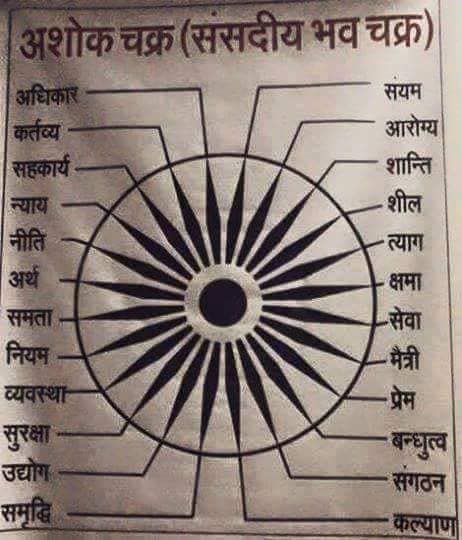 अशोक चक्र (संसदीय भव चक्र)
अधिकार
संयम
कर्तव्य
आरोग्य
सहकार्य
शान्ति
न्याय
शील
नीति
त्याग
अर्थ
क्षमा
समता
सेवा
नियम
मैत्री
व्यवस्था
प्रेम
सुरक्षा
बन्धुत्व
उद्योग
संगठन
समृद्धि
कल्याण